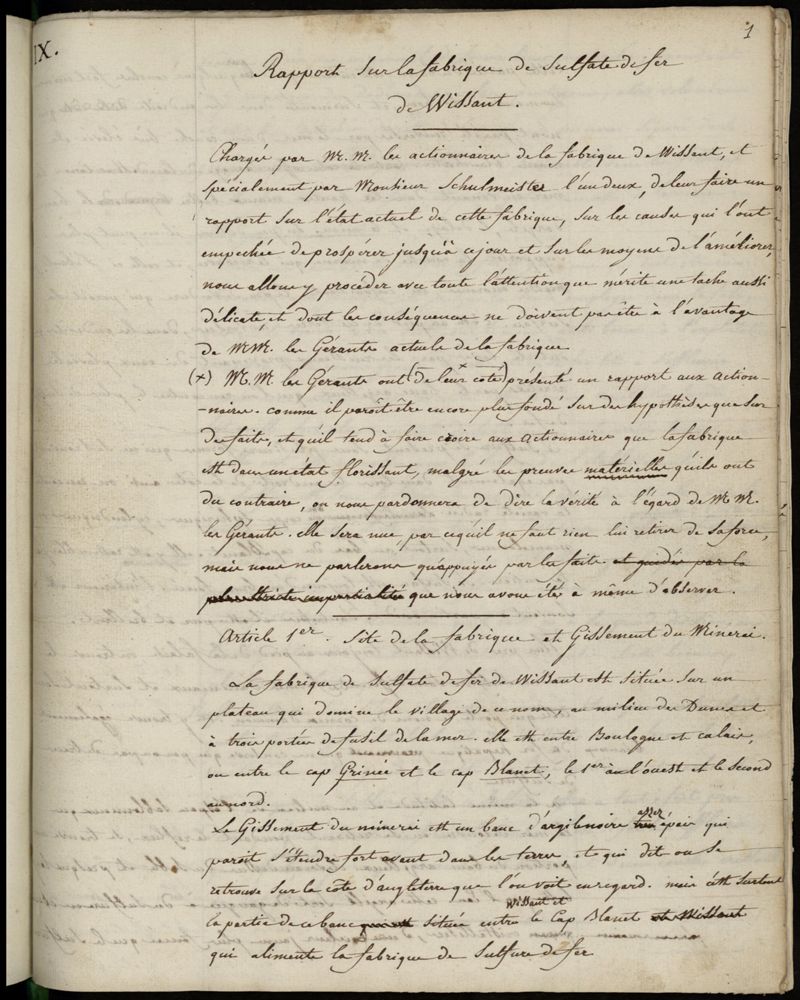 1
IX.
Rapport sur la fabrique de Sulfate de fer
de Wissant.
Chargés par M.M. les actionnaires de la fabrique de Wissant, et
spécialement par Monsieur Schulmeister l'un deux, de leur faire un
rapport sur l'état actuel de cette fabrique, sur les causes qui l'ont
empechée de prospérer jusqu'à ce jour et sur les moyens de l'améliorer,
nous allons y procéder avec toute l'attention que mérite une tache aussi
délicate, et dont les conséquences ne doivent pas être à l'avantage
de MM. les Gérants actuels de la fabrique
(x) M.M. les Gérants ont (de leur coté) présenté un rapport aux action-
-naires. comme il paroit être encore plus fondé sur des hypothèses que sur
des faits, et qu'il tend à faire croire aux actionnaires que la fabrique
est dans un état florissant, malgré les preuves matérielles qu'ils ont
du contraire, on nous pardonnera de dire la vérité à l'égard de M M.
les Gérants. elle sera nue par ce qu'il ne faut rien lui retirer de sa force,
mais nous ne parlerons qu'appuyés par les faits et guidés par la
plus stricte impartialité que nous avons étés à même d'observer.
Article 1er. Site de la fabrique et Gissement du Minerai.
La fabrique de Sulfate de fer de Wissant est située sur un
plateau qui domine le village de ce nom, au milieu des Dunes et
à trois portées de fusil de la mer. elle est entre Boulogne et calais,
ou entre le cap Grinée et le cap Blanet, le 1er à l'ouest et le second
au nord.
Le Gissement du minerai est un banc d'argile noire assez épais qui
paroit s'étendre fort avant dans les terres, et qui dit on se
retrouve sur la côte d'angleterre que l'on voit en regard. mais c'est surtout
la partie de ce banc qui est située entre Wissant et le Cap Blanet et Wissant
qui alimente la fabrique de Sulfure de fer